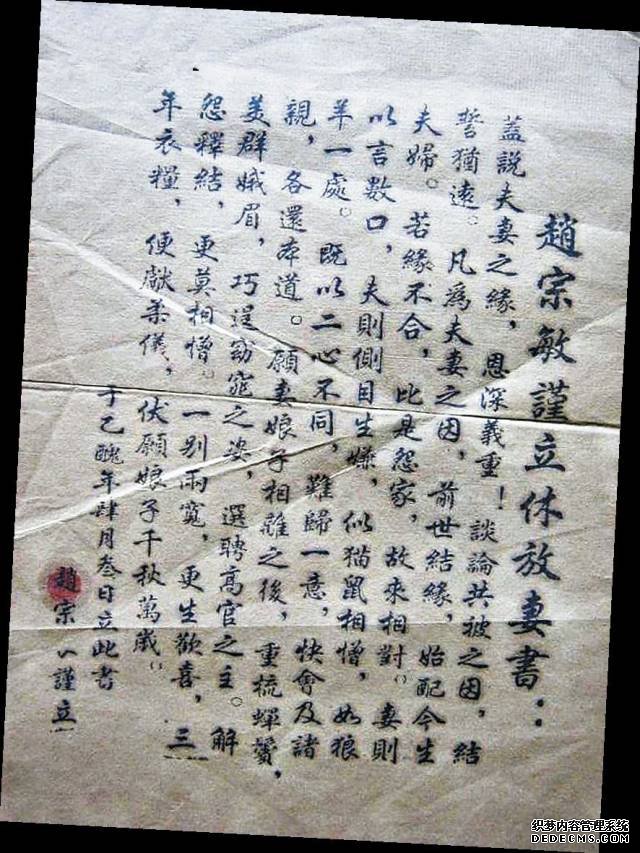 趙宗敏謹立休放妻書：
蓋說夫妻之緣，恩深義重！談論共被之因，結
誓猶遠。凡爲夫妻之因，前世結緣，始配今生
夫婦。若緣不合，比是怨家，故來相對。妻則
以言數口，夫則側目生嫌，似猫鼠相憎，如狼
羊一處。既以二心不同，難歸一意，快會及諸
親，各還本道。願妻娘子相離之後，重梳蟬鬢，
美群娥眉，巧逞窈窕之姿，選聘高官之主。解
怨釋結，更莫相憎。一別兩寬，更生歡喜，三
年衣糧，便獻柔儀，伏願娘子千秋萬歲。
于己醜年肆月叁日立此書
趙宗謹立
织梦内容管理系统
DEDECMS.COM